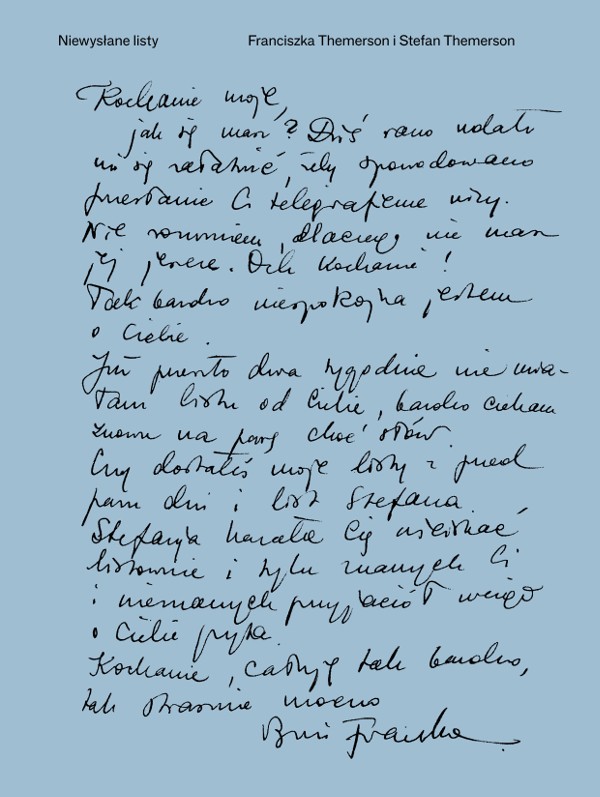 Niewysłane listy
Franciszka Themerson i Stefan Themerson
Kochanie moje,
jak się masz? Dziś rano udało
mi się załatwić, żeby spowodowano
przesłanie Ci telegraficzne wizy.
Nie rozumiem, dlaczego nie masz
jej jeszcze. Och Kochanie!
Tak bardzo niespokojna jestem
o Ciebie.
Już przeszło dwa tygodnie nie mia-
łam listu od Ciebie, bardzo czekam
znowu na parę choć słów.
Czy dostałeś moje listy z przed
paru dni i list Stefana.
Stefanja kazała Cię uściskać
listownie i tylu znanych Ci
i nieznanych przyjaciół wciąż
o Ciebie pyta.
Kochanie, całuję tak bardzo,
tak strasznie mocno
Franciszka